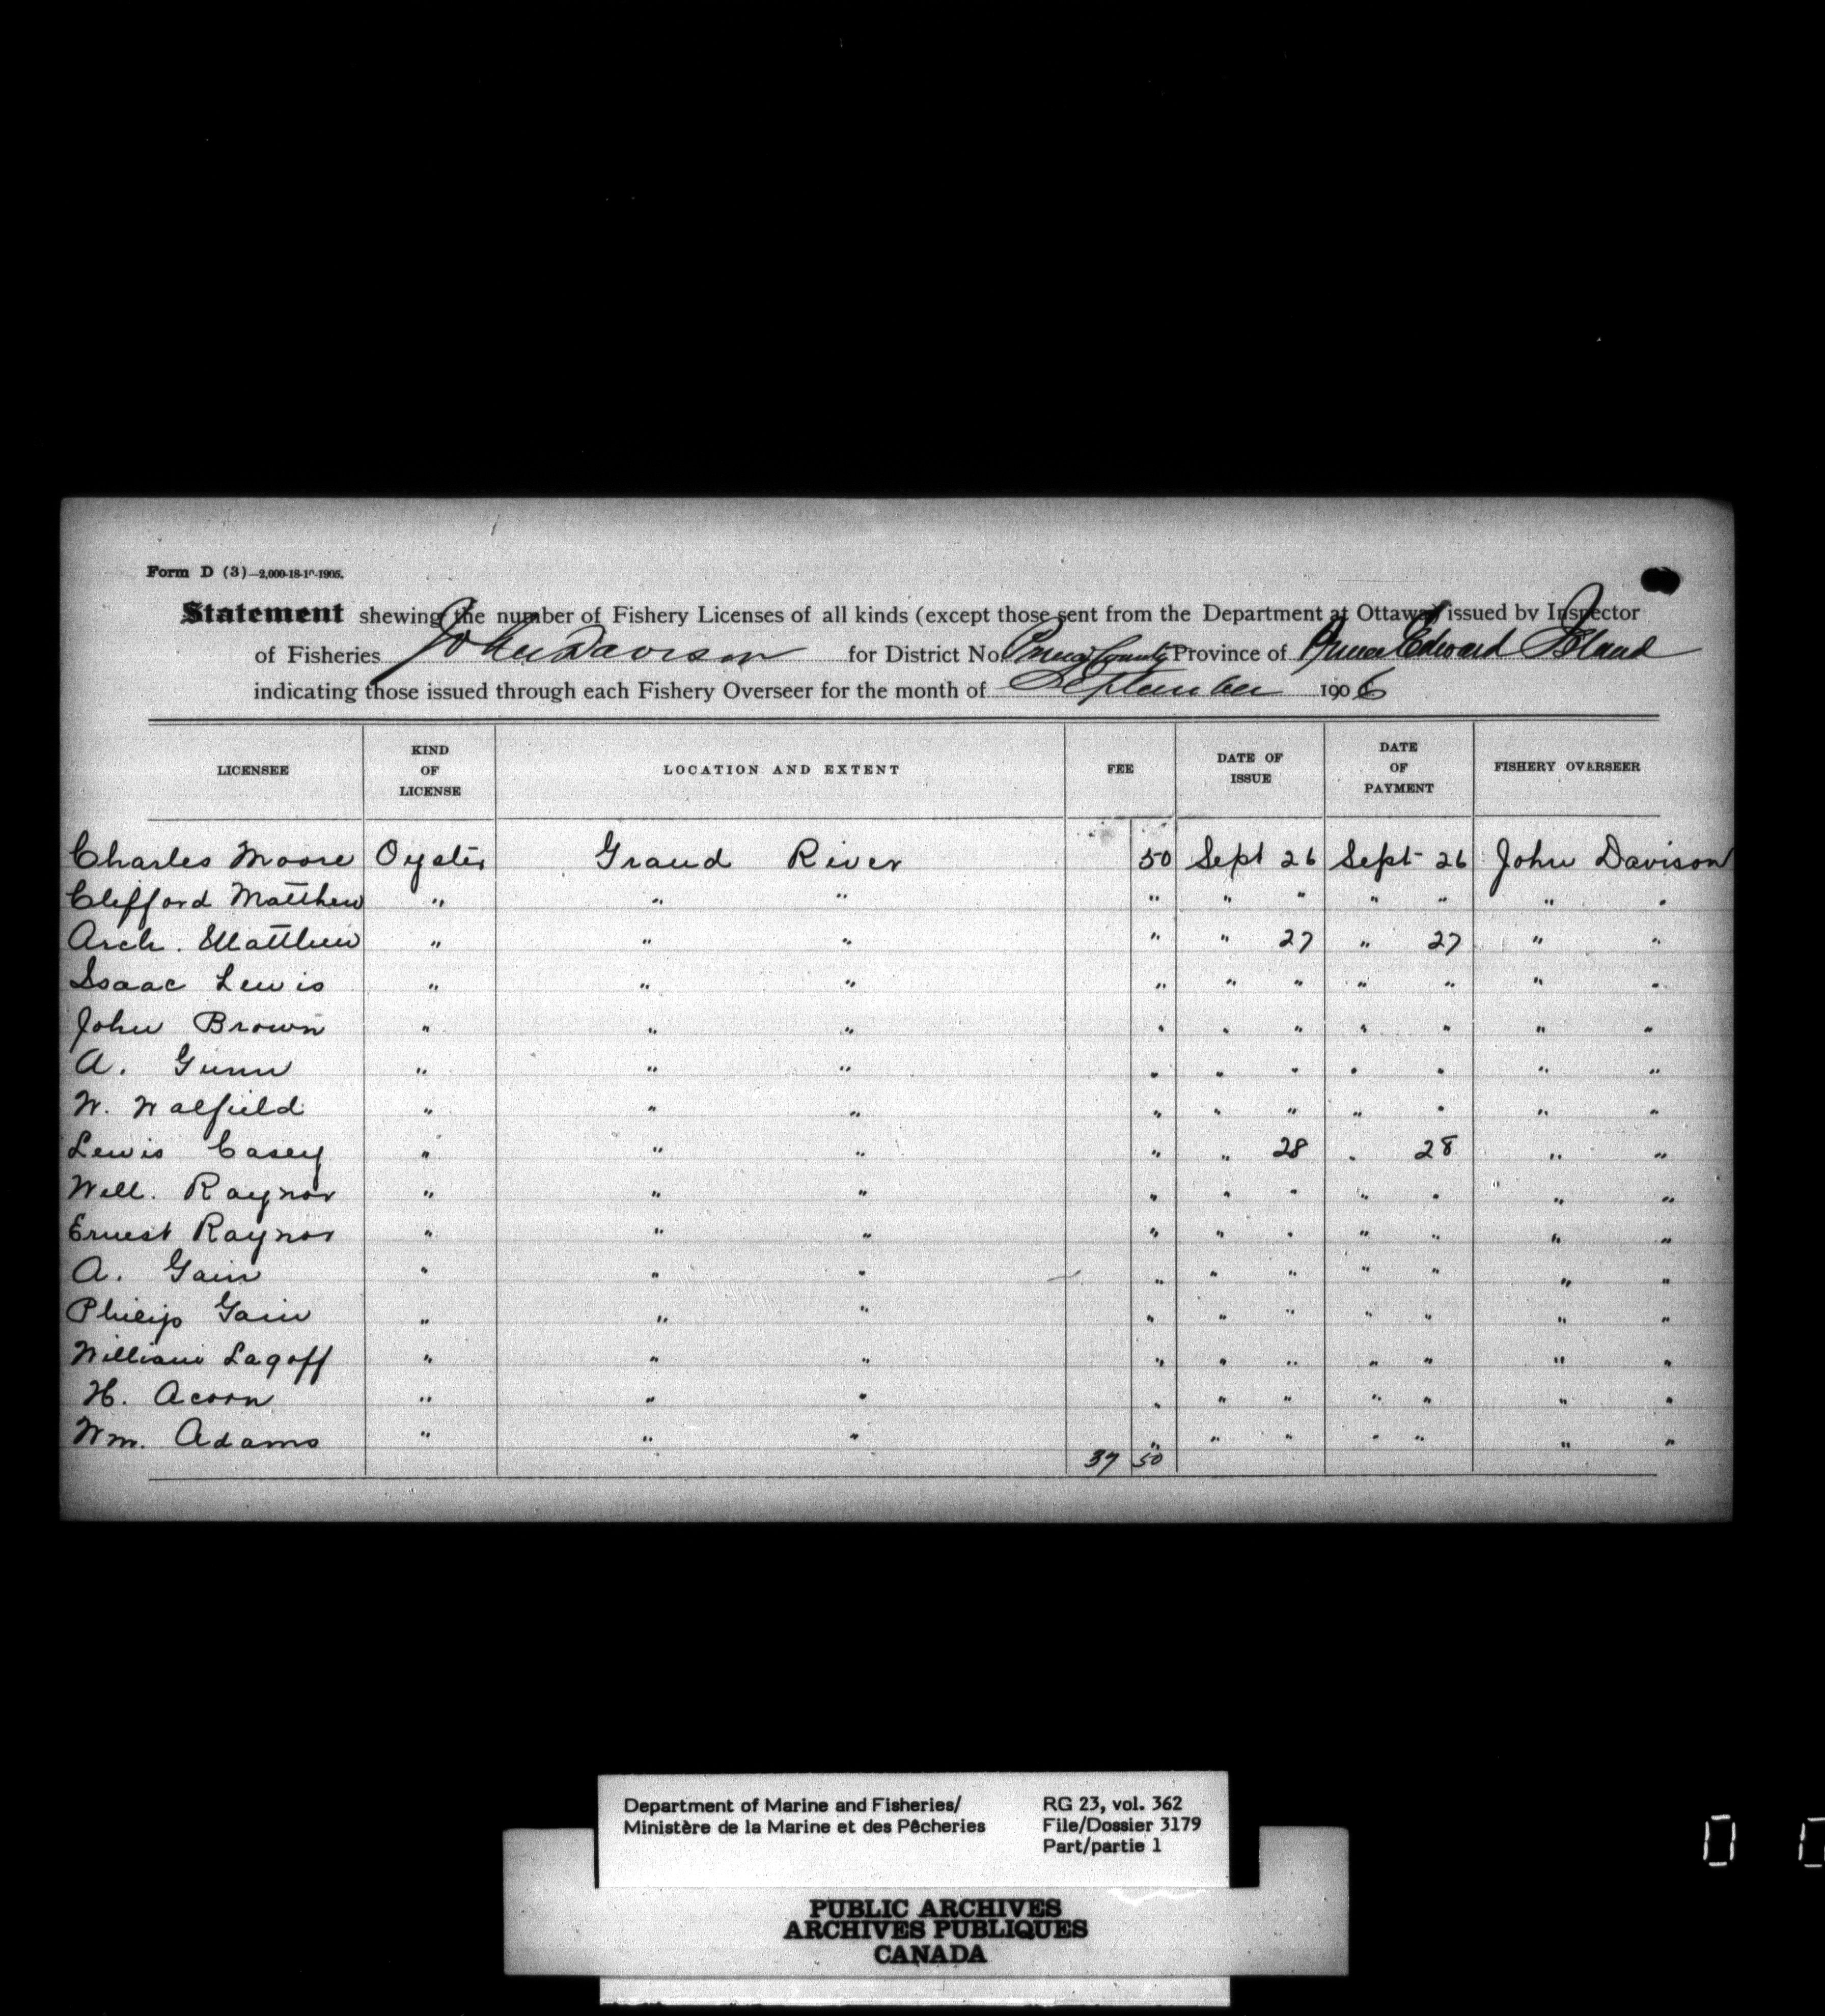 Form D (3)—2,000-18-10-1905.
Statement shewing the number of Fishery Licenses of all kinds (except those sent from the Department at Ottawa) issued by Inspector
of Fisheries John Davison for District No Prince County Province of Prince Edward Island
indicating those issued through each Fishery Overseer for the month of September 1906
LICENSEE KIND OF LICENSE LOCATION AND EXTENT FEE DATE OF ISSUE DATE OF PAYMENT FISHERY OVERSEER
Charles Moore Oyster Grand River 50 Sept 26 Sept 26 John Davison
Clifford Matthew " " " " " " " " " "
Arch. Matthew " " " " " 27 " 27 " "
Isaac Lewis " " " " " " " " " "
John Brown " " " " " " " " " "
A. Gunn " " " " " " " " " "
W. Walfield " " " " " " " " " "
Lewis Casey " " " " " 28 " 28 " "
Will. Raynor " " " " " " " " " "
Ernest Raynor " " " " " " " " " "
A. Gain " " " " " " " " " "
Philip Gain " " " " " " " " " "
William Lagoff " " " " " " " " " "
H. Acorn " " " " " " " " " "
Wm. Adams " " " " " " " " " "
37 50
Department of Marine and Fisheries/ RG 23, vol. 362
Ministère de la Marine et des Pêcheries File/Dossier 3179
Part/partie 1
PUBLIC ARCHIVES
ARCHIVES PUBLIQUES
CANADA